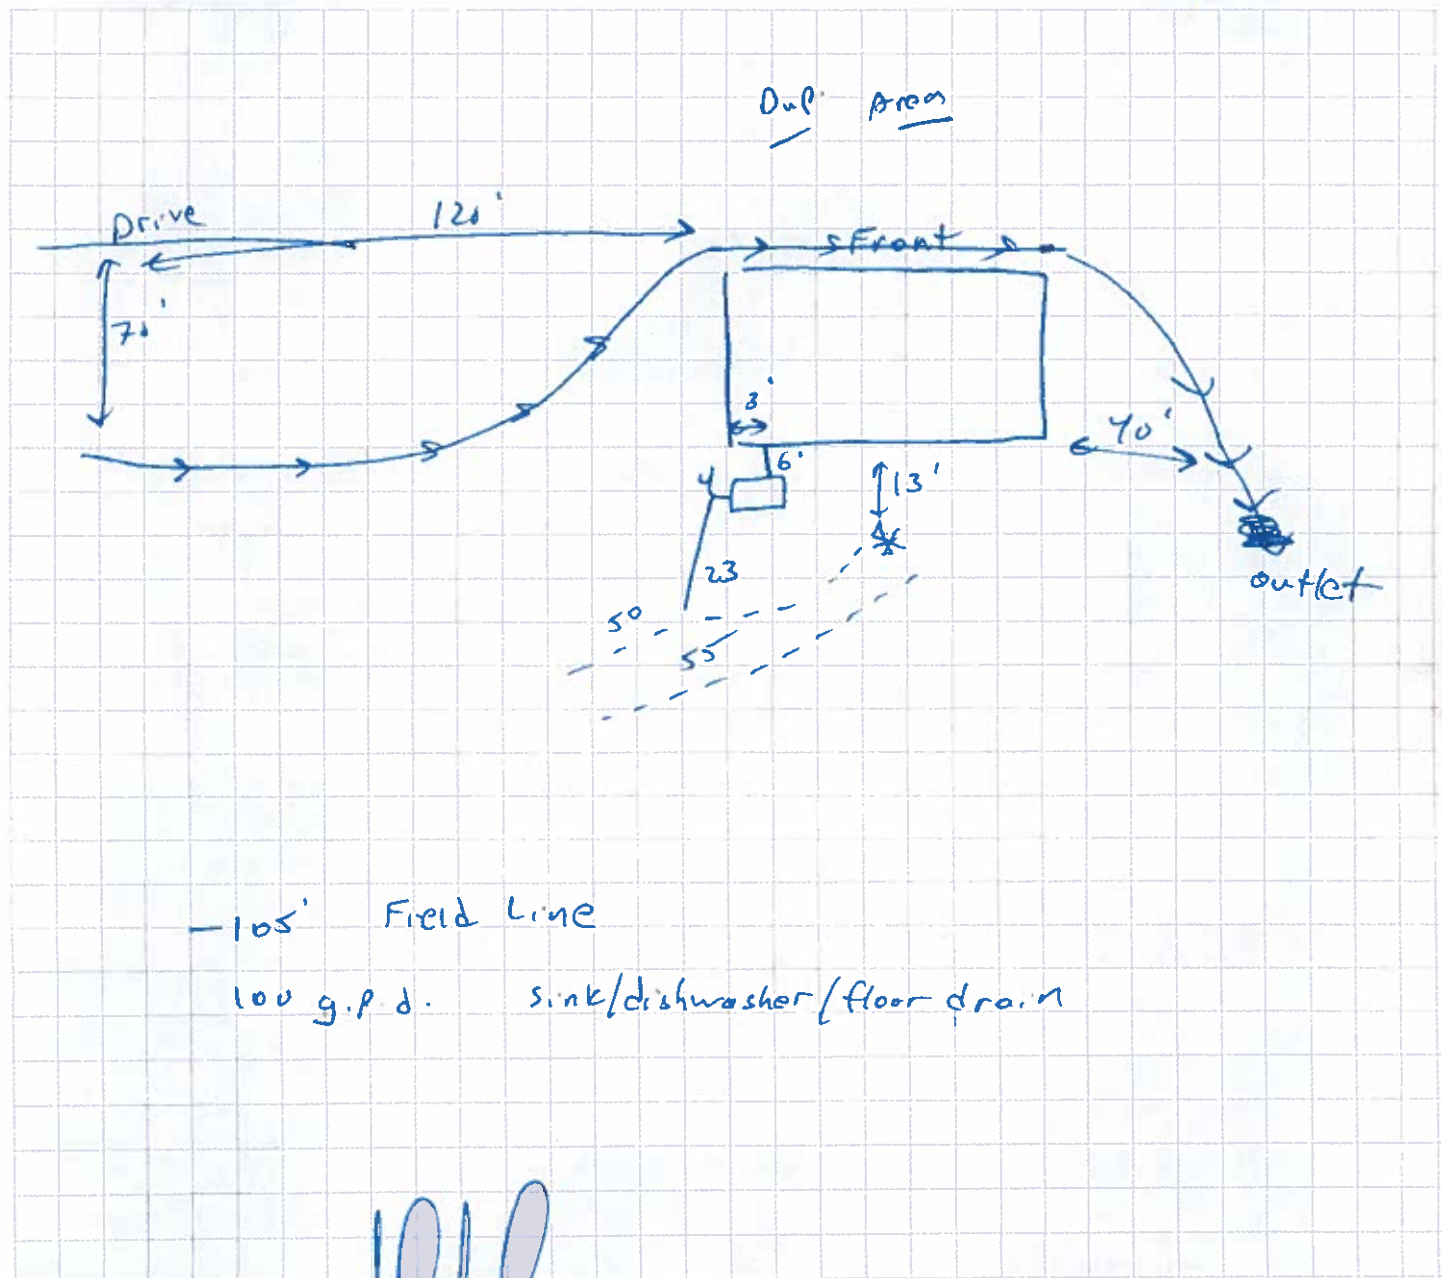 Dup. Area
Drive
120'
Front
70'
3'
6'
40'
13'
4
23
50
50
outlet
-105' Field Line
100 g.p.d. sink/dishwasher/floor drain